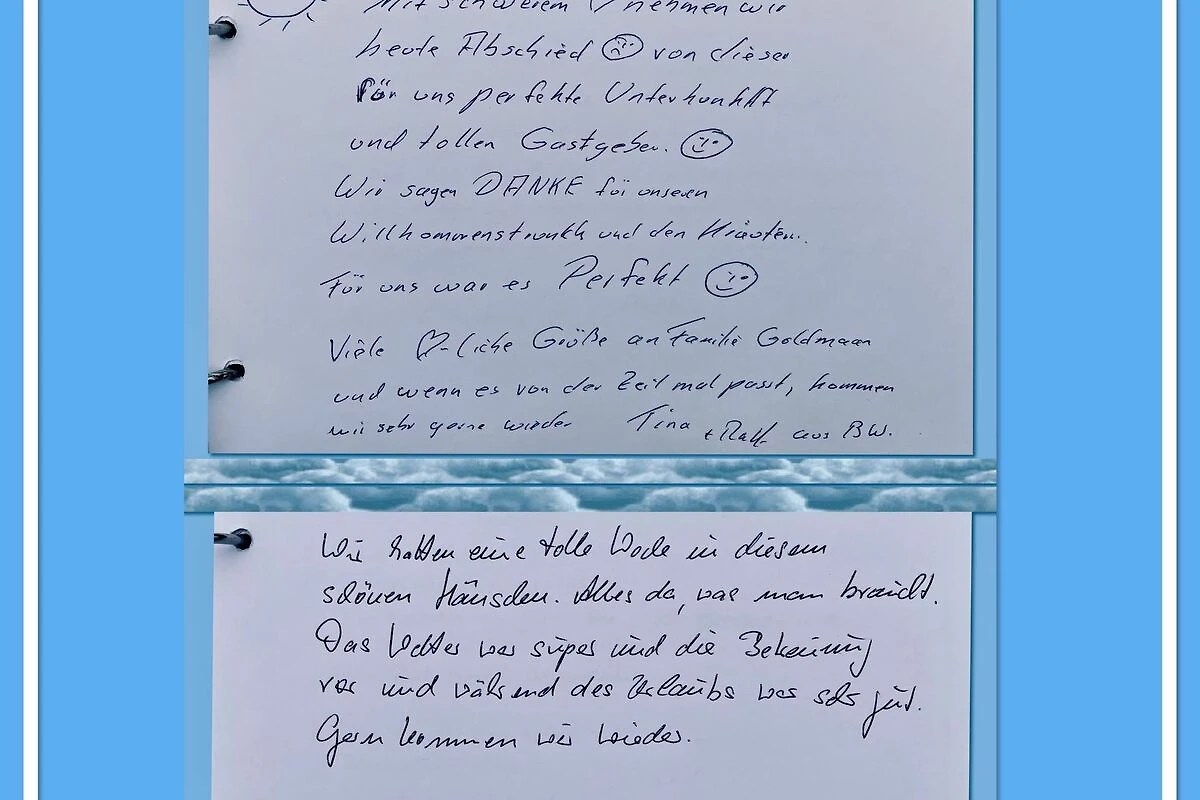 Mit schwerem ♡ nehmen wir
heute Abschied ☹ von dieser
für uns perfekte Unterkunft
und tollen Gastgeber. ☺
Wir sagen DANKE für unseren
Willkommenstrunkk und den Kräuten..
Für uns war es Perfekt ☺
Viele ♡-liche Grüße an Familie Goldmann
und wenn es von der Zeit mal passt, kommen
wir sehr gerne wieder Tina + Ralf aus BW.
Wir hatten eine tolle Woche in diesem
schönen Häuschen. Alles da, was man braucht.
Das Wetter war super und die Betreuung
vor und während des Urlaubs war sehr gut.
Gern kommen wir wieder.